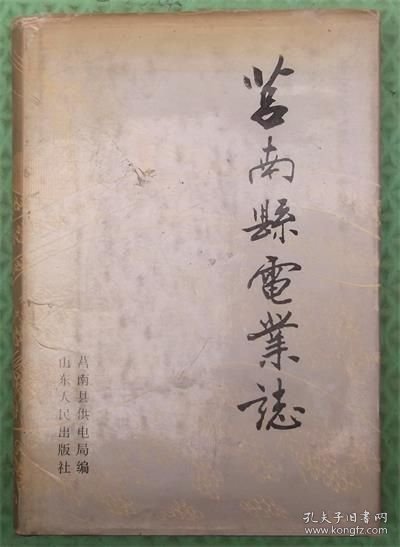 莒南縣電業誌
莒南县供电局编
山东人民出版社
孔夫子旧书网
www.kongfz.com